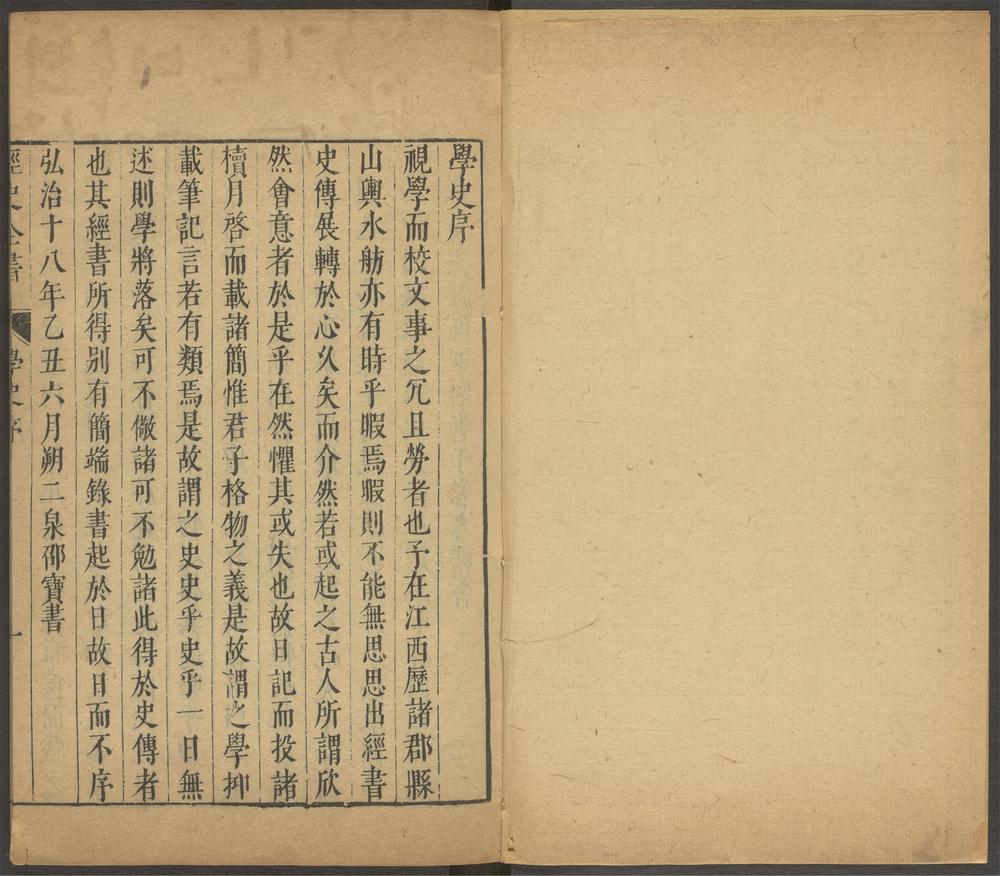 學史序
視學而校文事之冗且勞者也予在江西歷諸郡縣
山輿水舫亦有時乎暇焉暇則不能無思思出經書
史傳展轉於心久矣而介然若或起之古人所謂欣
然會意者於是乎在然懼其或失也故日記而投諸
櫝月啓而載諸簡惟君子格物之義是故謂之學抑
載筆記言若有類焉是故謂之史史乎史乎一日無
述則學將落矣可不儆諸可不勉諸此得於史傳者
也其經書所得别有簡端錄書起於日故日而不序
弘治十八年乙丑六月朔二泉邵寶書
經史全書 學史序 一